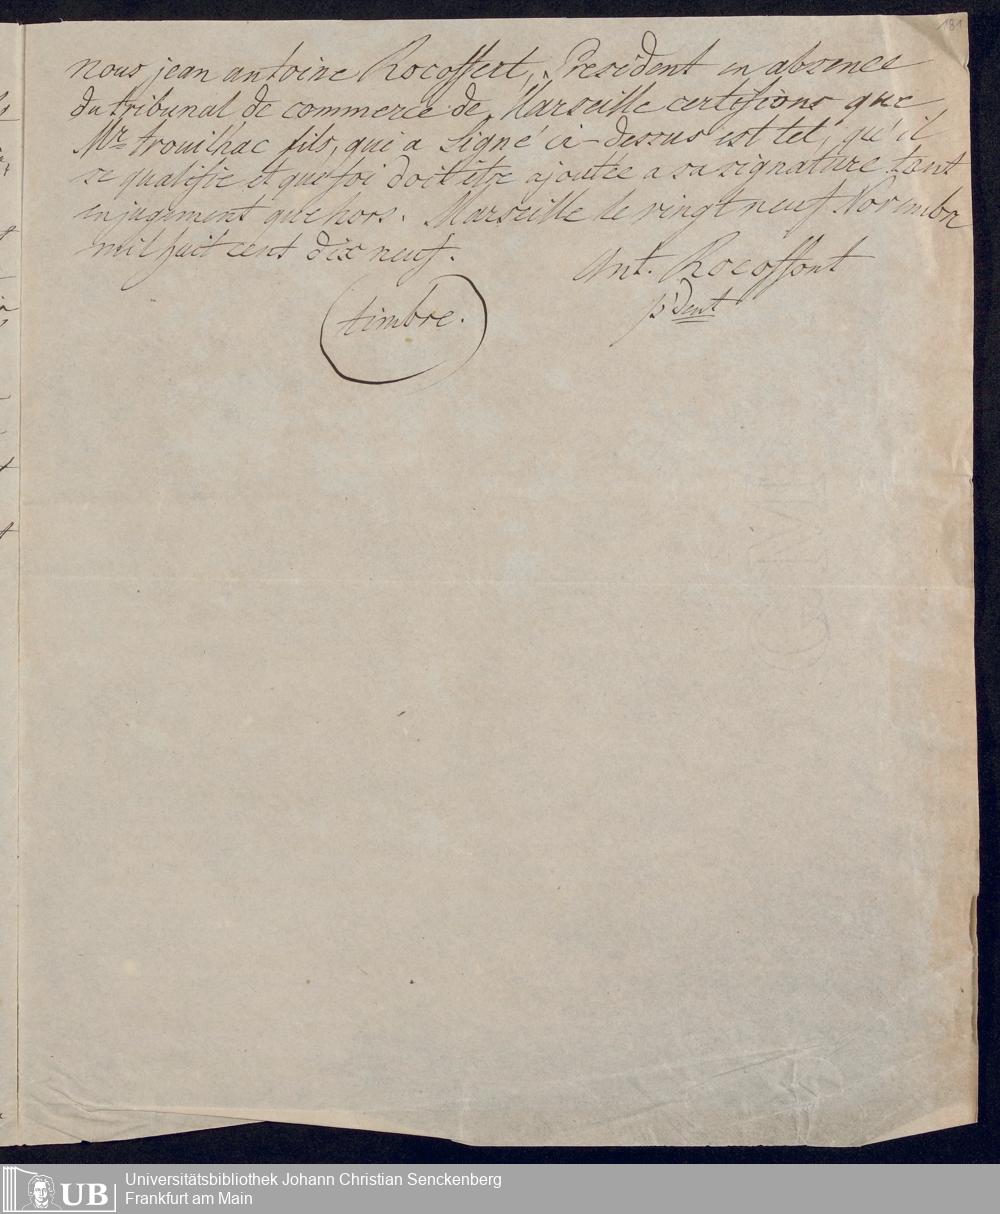 181
nous jean antoine Rocoffert, President en absence
du tribunal de commerce de Marseille certifions que
Mr. trouilhac fils, qui a signé ci-dessus est tel, qu'il
se qualifie et que foi doit être ajoutée a sa signature tant
en jugement que hors. Marseille le vingt neuf Novembre
mil huit cent dix neuf.
Ant. Rocoffort
p'dent
timbre.
GM
UB
Universitätsbibliothek Johann Christian Senckenberg
Frankfurt am Main